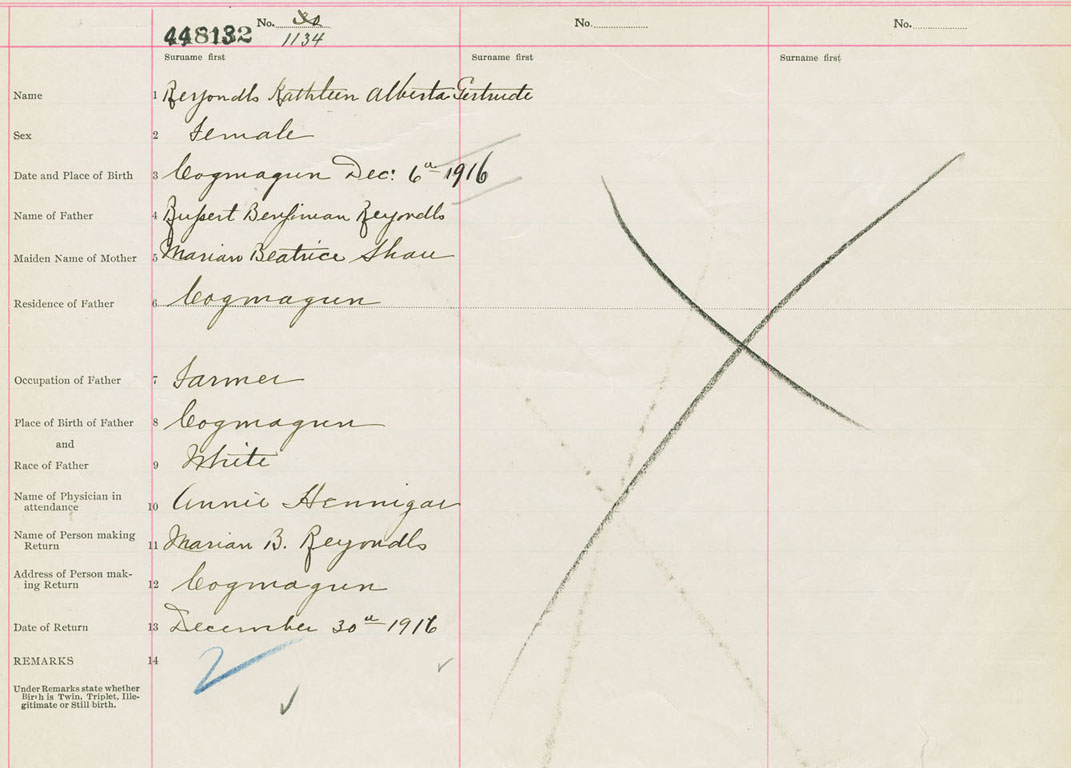 448132 No. 30 1134 No. No.
Surname first Surname first Surname first
Name 1 Reyondls Kathleen Alberta Gertrude
Sex 2 Female
Date and Place of Birth 3 Cogmagun Dec: 6th 1916
Name of Father 4 Rupert Benjiman Reyondls
Maiden Name of Mother 5 Marian Beatrice Shaw
Residence of Father 6 Cogmagun
Occupation of Father 7 Farmer
Place of Birth of Father 8 Cogmagun
and
Race of Father 9 White
Name of Physician in
attendance 10 Annie Hennigar
Name of Person making
Return 11 Marian B. Reyondls
Address of Person mak-
ing Return 12 Cogmagun
Date of Return 13 December 30th 1916
REMARKS 14 2
Under Remarks state whether
Birth is Twin, Triplet, Ille-
gitimate or Still birth.